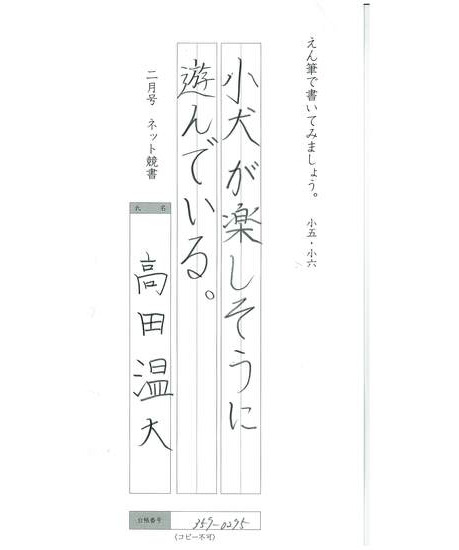 えん筆で書いてみましょう。 小五・小六
小犬が楽しそうに
遊んでいる。
二月号 ネット競書
氏名
高田温大
台帳番号 359-0295
(コピー不可)